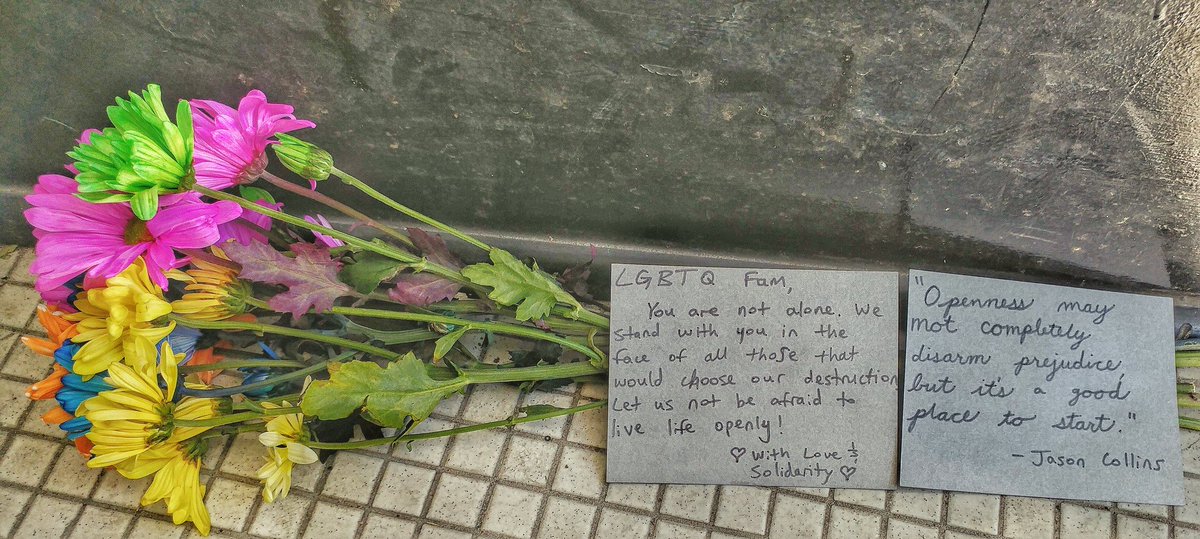 LGBTQ Fam,
You are not alone. We
stand with you in the
face of all those that
would choose our destruction
Let us not be afraid to
live life openly!
♡ with Love &
Solidarity ♡
"Openness may
not completely
disarm prejudice,
but it's a good
place to start."
- Jason Collins